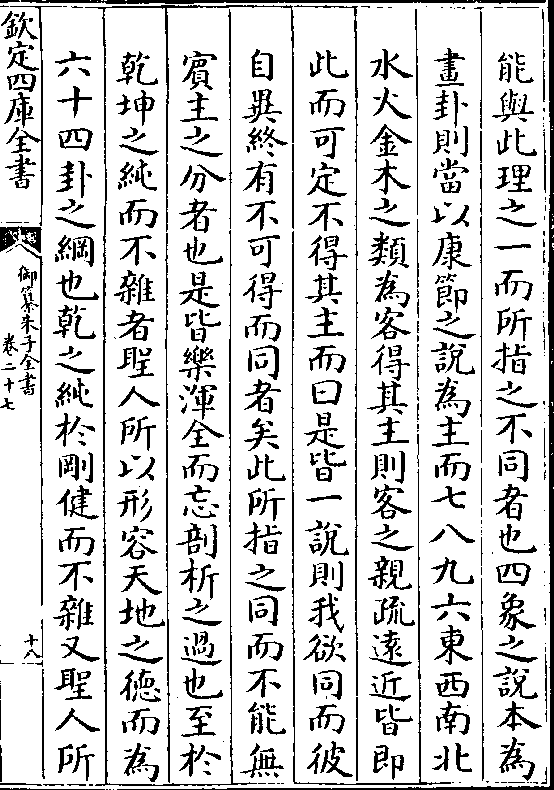 能與此理之一而所指之不同者也四象之說本為
畫卦則當以康節之說為主而七八九六東西南北
水火金木之類為客得其主則客之親疏遠近皆即
此而可定不得其主而曰是皆一說則我欲同而彼
自異終有不可得而同者矣此所指之同而不能無
賓主之分者也是皆樂渾全而忘剖析之過也至於
乾坤之純而不雜者聖人所以形容天地之德而為
六十四卦之綱也乾之純於剛健而不雜又聖人所
欽定四庫全書
御纂朱子全書
卷二十七
十八